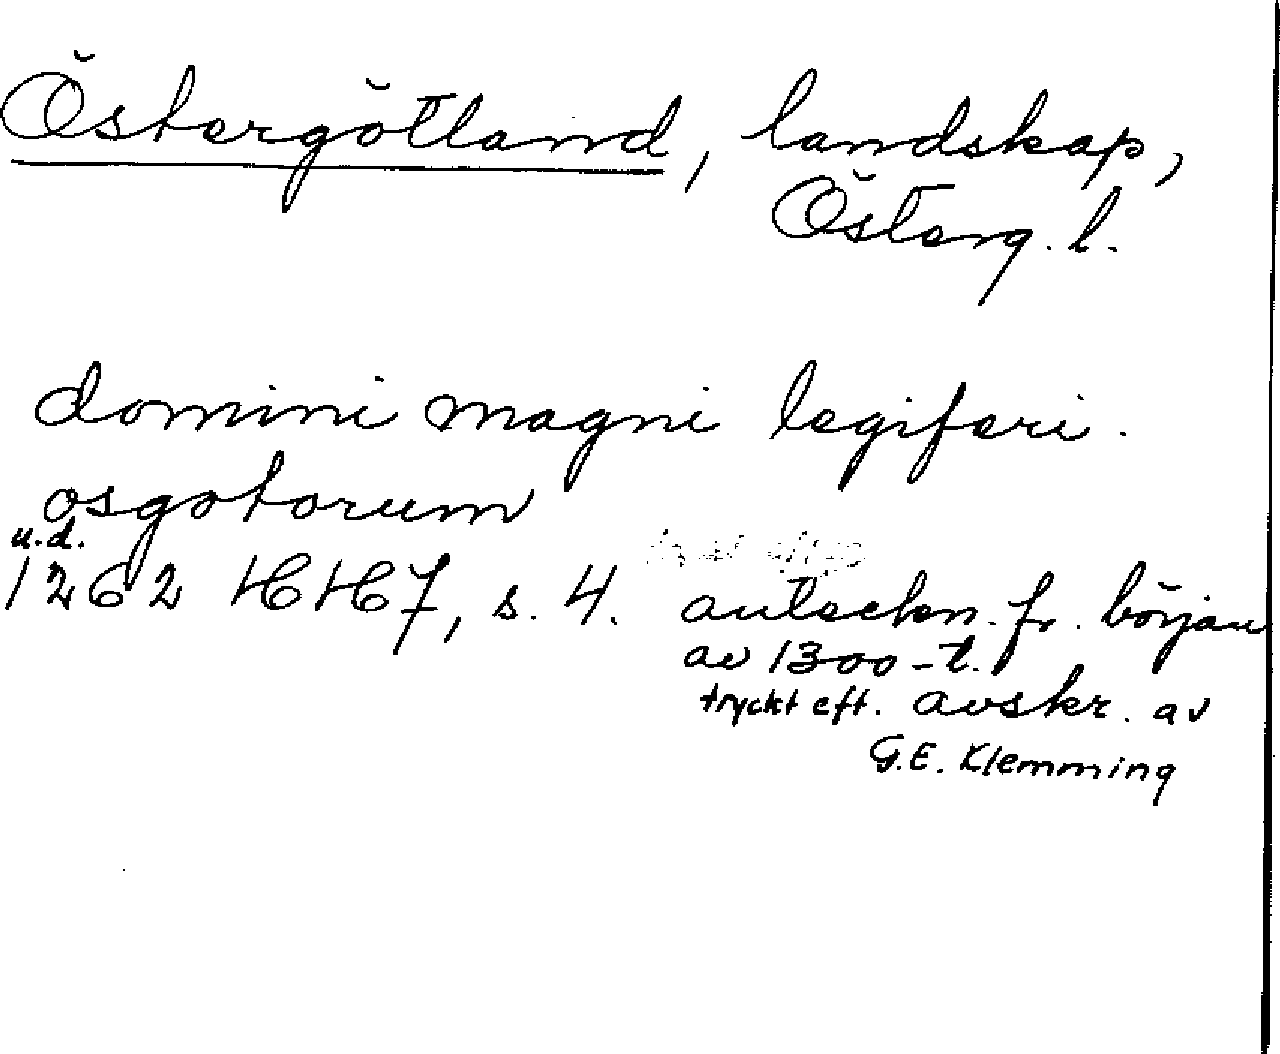 Östergötland, landskap,
Österg. l.
domini magni legiferi.
osgotorum
u.d.
1262 HH7, s. 4. anteckn. fr. början
av 1300-t.
tryckt eft. avskr. av
G.E. Klemming